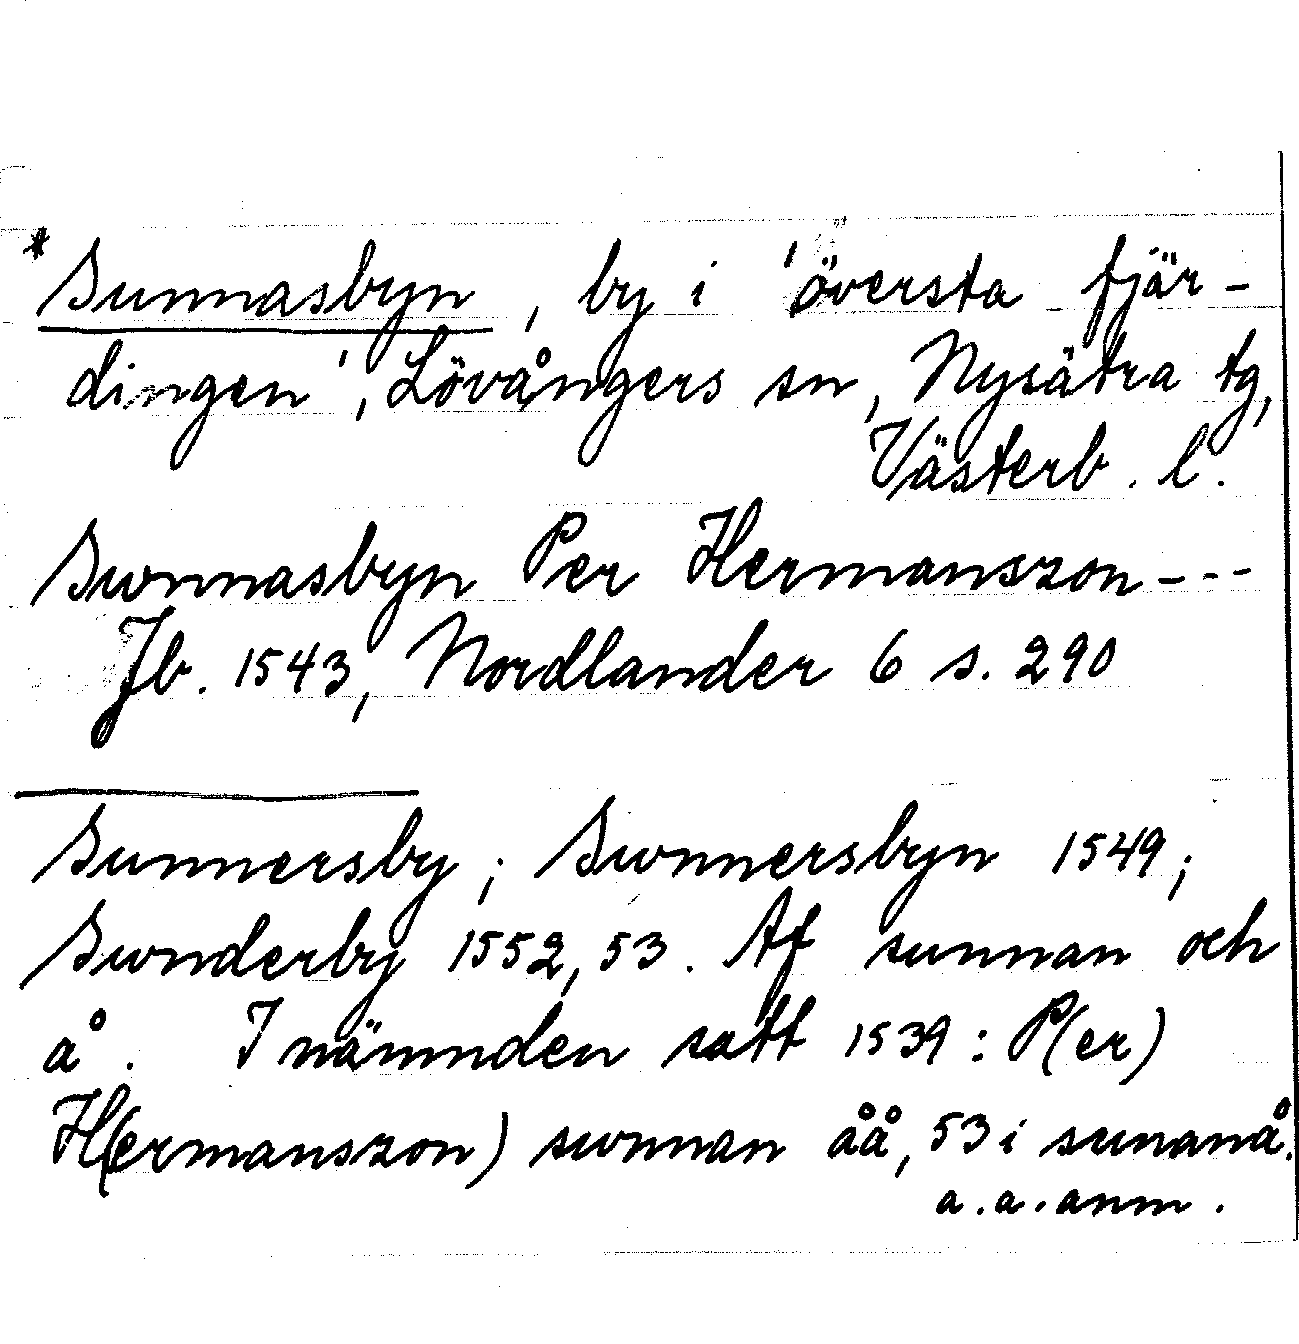 *Sunnasbyn, by i 'översta fjär-
dingen', Lövångers sn, Nysätra tg,
Västerb. l.
Swnnasbyn Per Hermanszon---
Jb. 1543, Nordlander 6 s. 290
Sunnersby; Swnnersbyn 1549;
Swnderby 1552, 53. Af sunnan och
å. I nämnden satt 1539: P(er)
H(ermanszon) swnnan åå, 53 i sunanå.
a.a. anm.